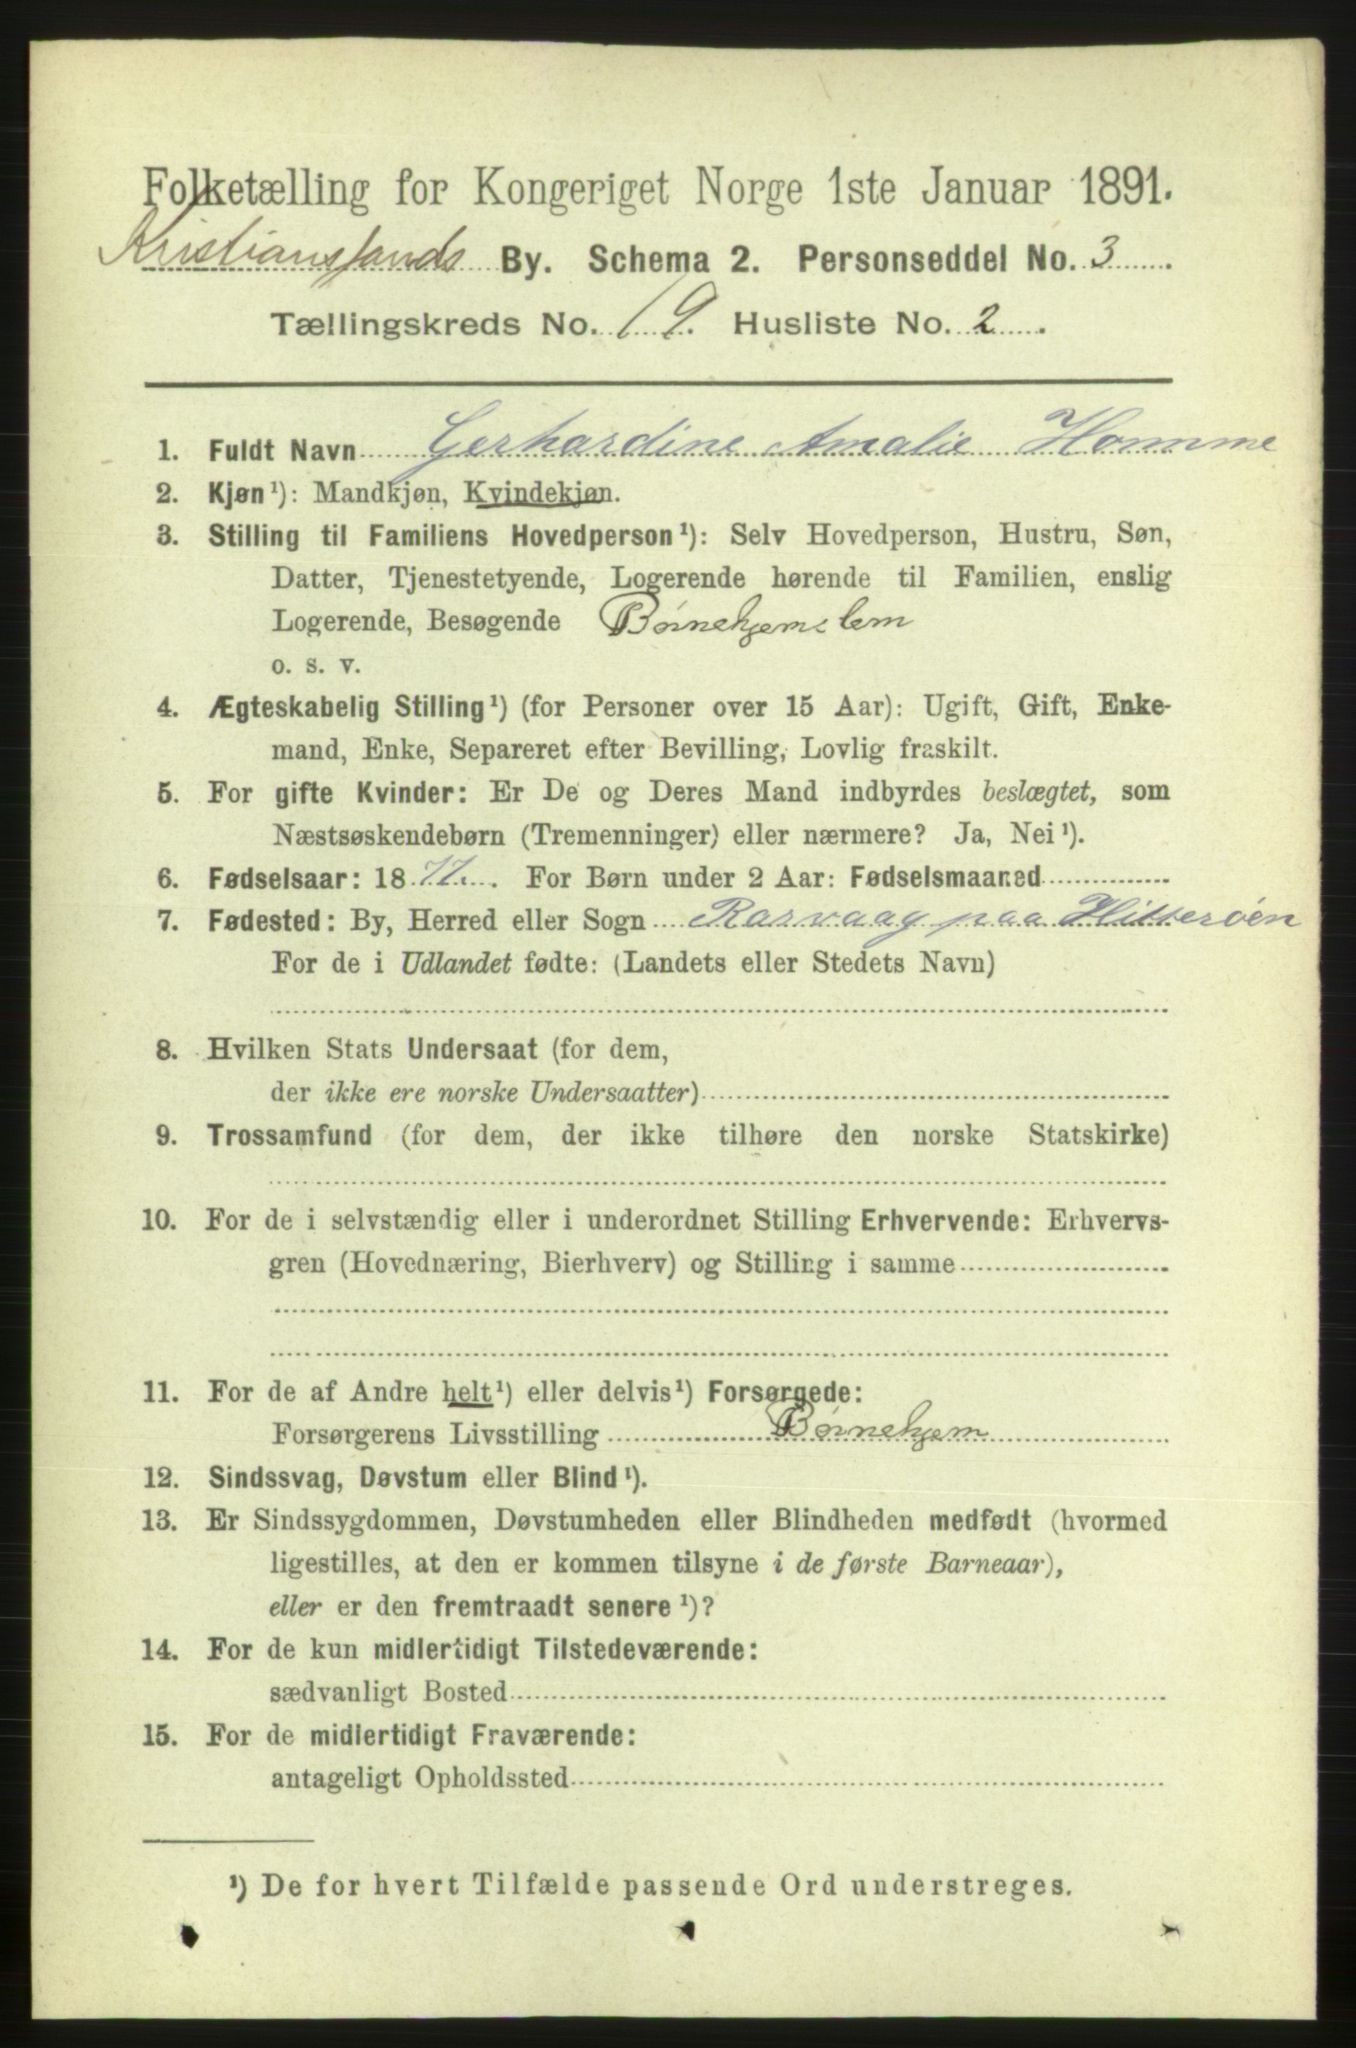 Folketælling for Kongeriget Norge 1ste Januar 1891.
Kristianssands By. Schema 2. Personseddel No. 3
Tællingskreds No. 19. Husliste No. 2.
1. Fuldt Navn Gerhardine Amalie Homme
2. Kjøn¹): Mandkjøn, Kvindekjøn.
3. Stilling til Familiens Hovedperson¹): Selv Hovedperson, Hustru, Søn,
Datter, Tjenestetyende, Logerende hørende til Familien, enslig
Logerende, Besøgende Børnehjemslem
o. s. v.
4. Ægteskabelig Stilling¹) (for Personer over 15 Aar): Ugift, Gift, Enke-
mand, Enke, Separeret efter Bevilling, Lovlig fraskilt.
5. For gifte Kvinder: Er De og Deres Mand indbyrdes beslægtet, som
Næstsøskendebørn (Tremenninger) eller nærmere? Ja, Nei¹).
6. Fødselsaar: 1877. For Børn under 2 Aar: Fødselsmaaned
7. Fødested: By, Herred eller Sogn Rasvaag paa Hitterøen
For de i Udlandet fødte: (Landets eller Stedets Navn)
8. Hvilken Stats Undersaat (for dem,
der ikke ere norske Undersaatter)
9. Trossamfund (for dem, der ikke tilhøre den norske Statskirke)
10. For de i selvstændig eller i underordnet Stilling Erhvervende: Erhvervs-
gren (Hovednæring, Bierhverv) og Stilling i samme
11. For de af Andre helt¹) eller delvis¹) Forsørgede:
Forsørgerens Livsstilling Børnehjem
12. Sindssvag, Døvstum eller Blind¹).
13. Er Sindssygdommen, Døvstumheden eller Blindheden medfødt (hvormed
ligestilles, at den er kommen tilsyne i de første Barneaar),
eller er den fremtraadt senere¹)?
14. For de kun midlertidigt Tilstedeværende:
sædvanligt Bosted
15. For de midlertidigt Fraværende:
antageligt Opholdssted
¹) De for hvert Tilfælde passende Ord understreges.